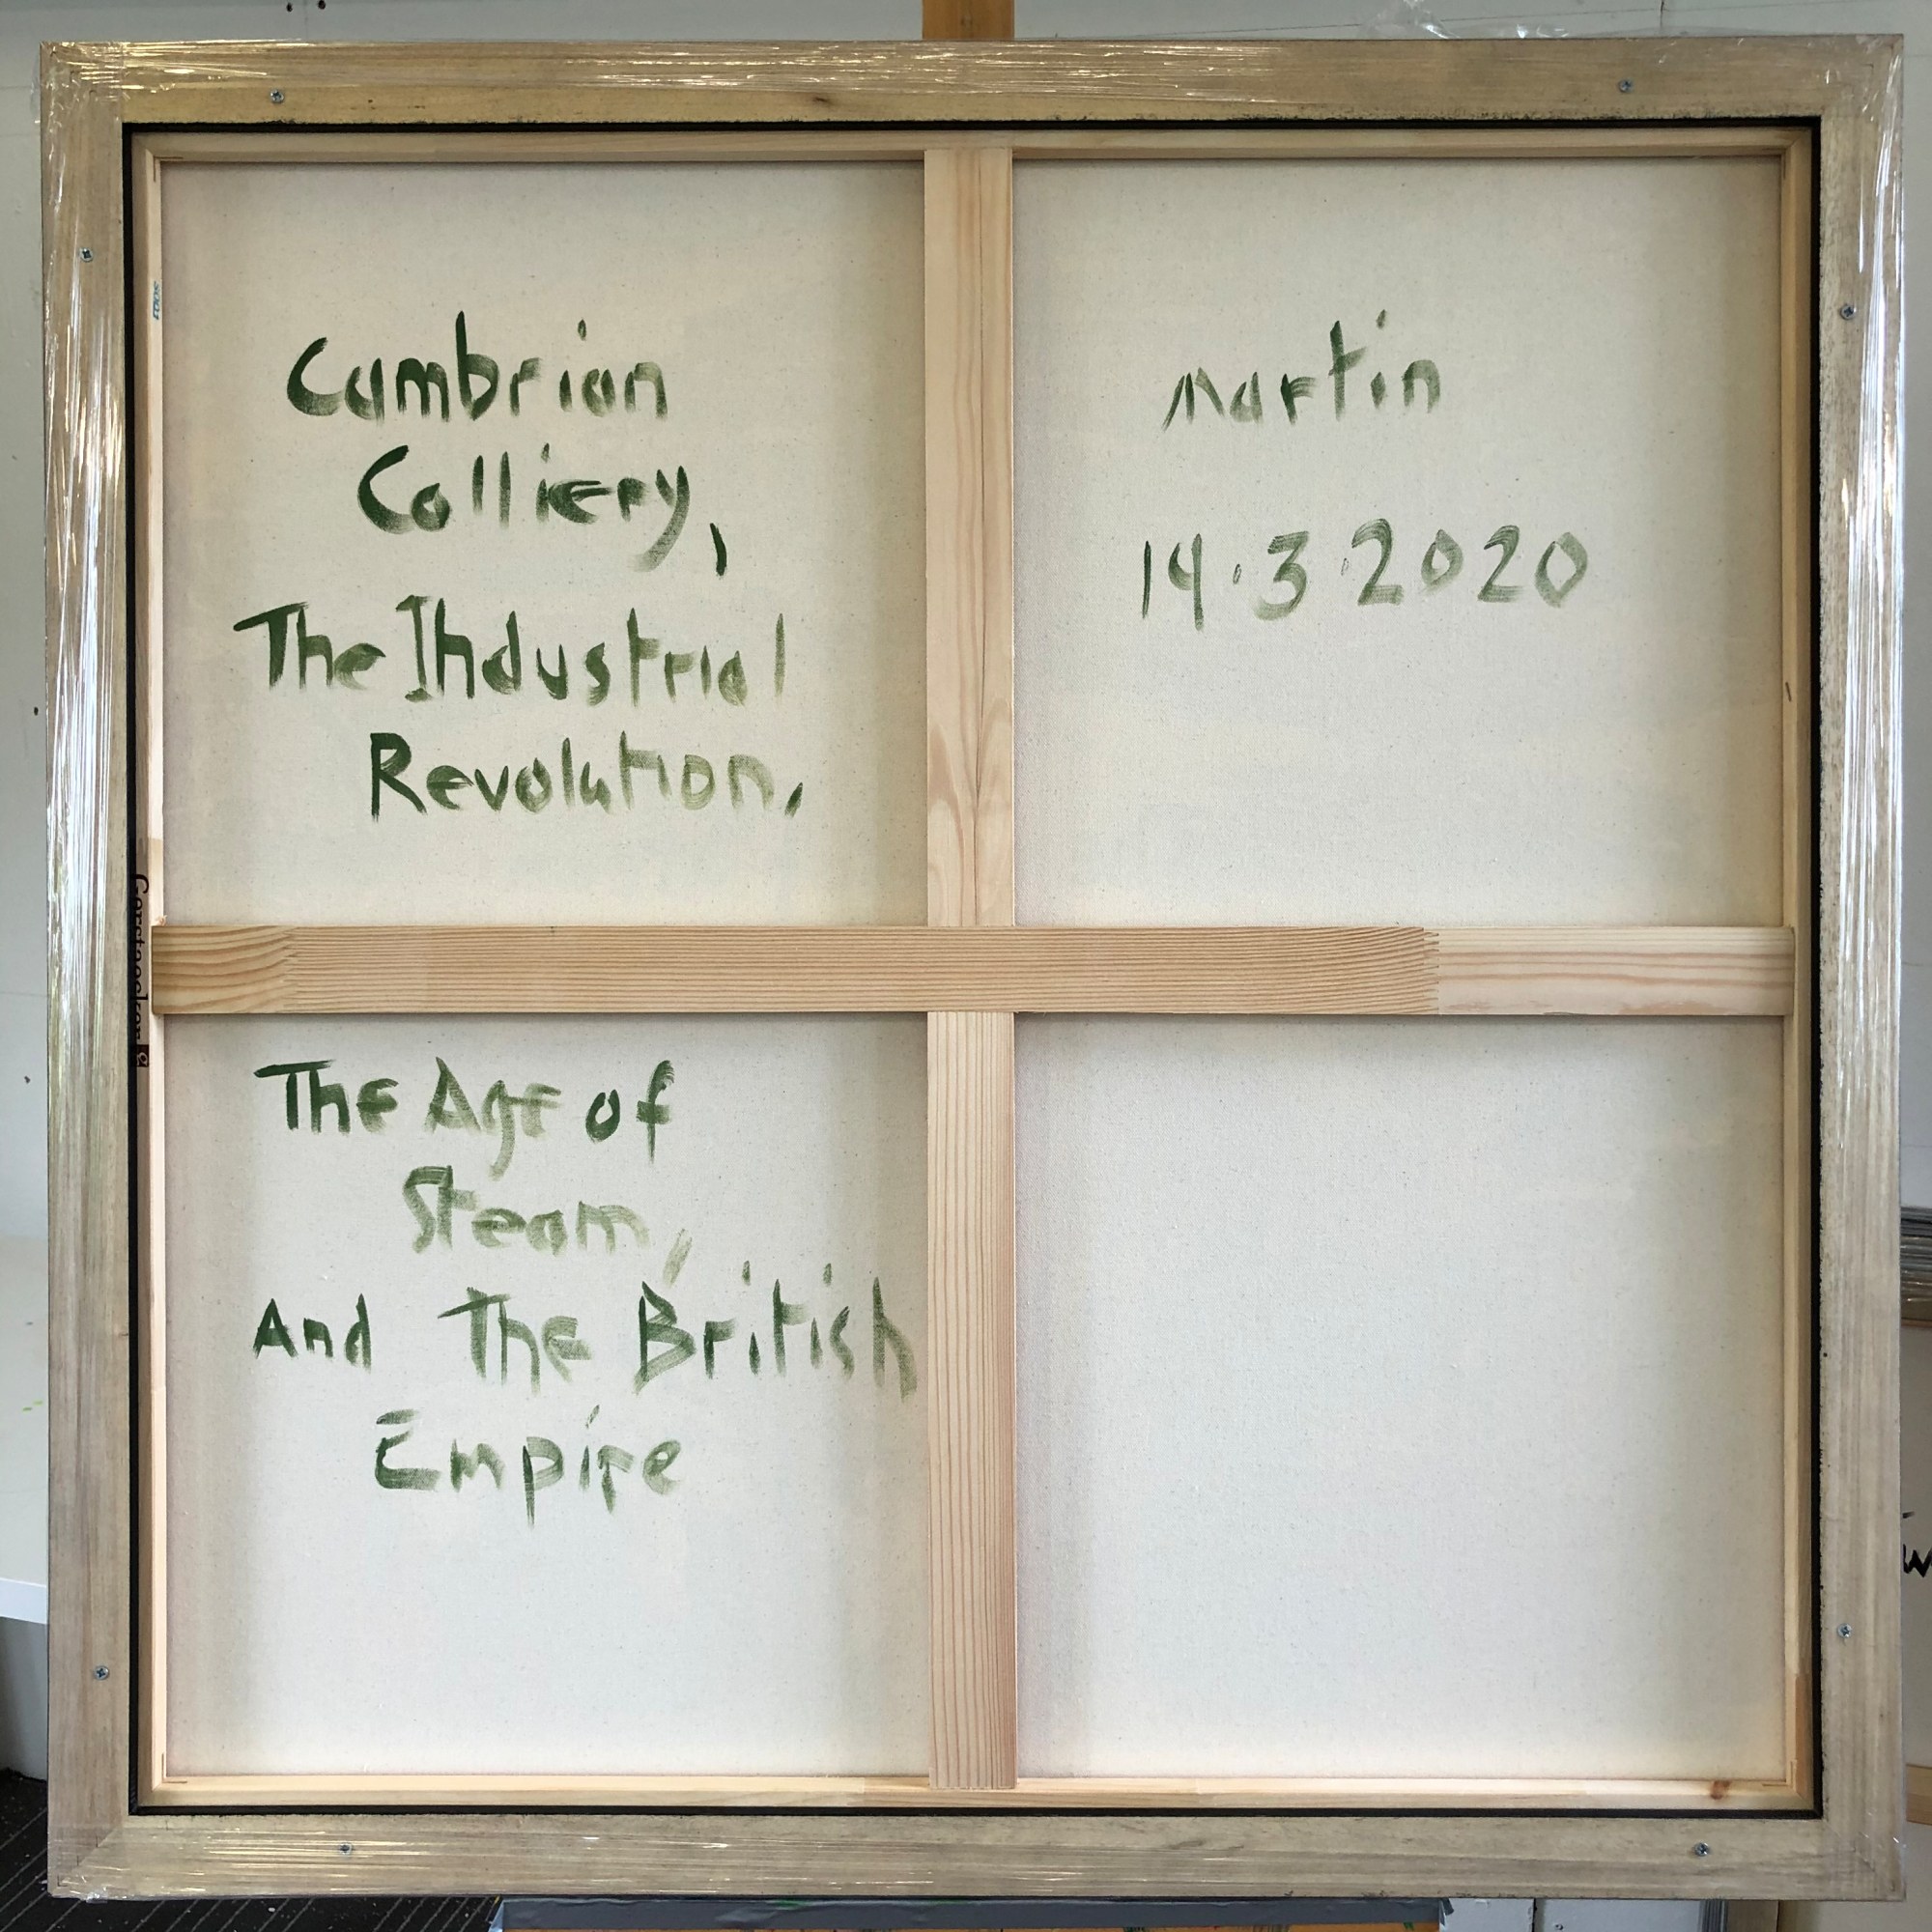 Cambrian
Colliery,
The Industrial
Revolution,
The Age of
Steam,
And The British
Empire
Martin
14.3.2020